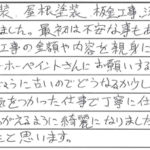 装、屋根塗装、板金工事、
ました。最初は不安な事もあ
工事の金額や内容を親身に
ーホーペイントさんにお願いする
ように古いのでどうなるか少し
をつかった仕事で丁寧に仕
かえるように綺麗になりました
と思います。